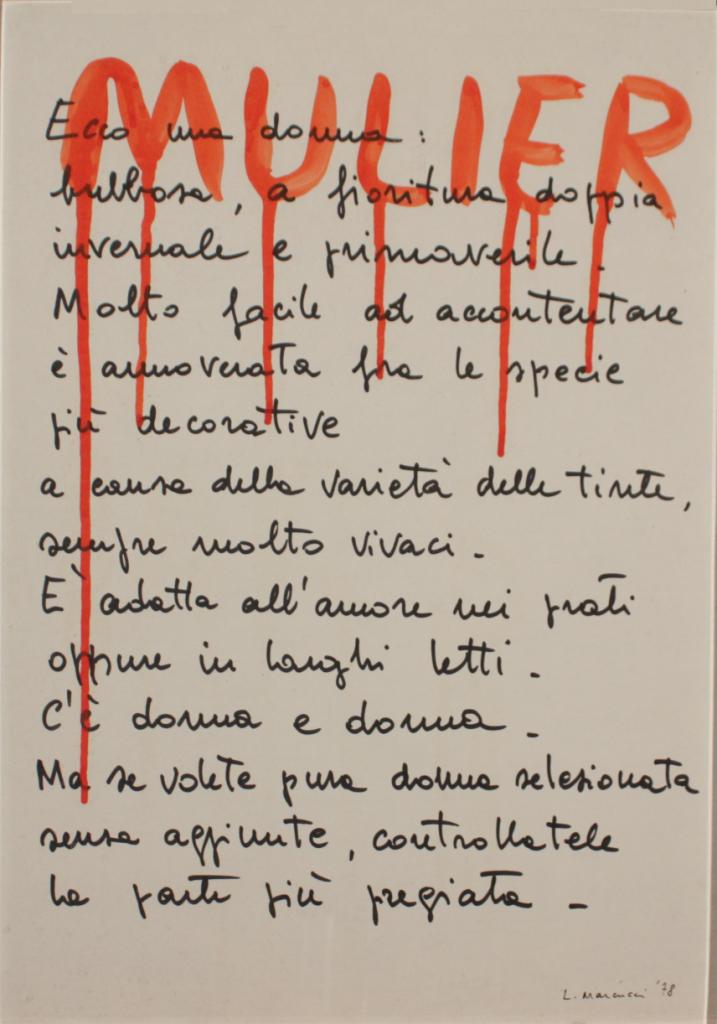 MULIER
Ecco una donna:
bulbosa, a fioritura doppia
invernale e primaverile.
Molto facile ad accontentare
è annoverata fra le specie
più decorative
a causa della varietà delle tinte,
sempre molto vivaci.
E' adatta all'amore nei prati
oppure in lunghi letti.
C'è donna e donna.
Ma se volete pura donna selezionata
senza aggiunte, controllatele
la parte più pregiata.
L. Marcucci '78